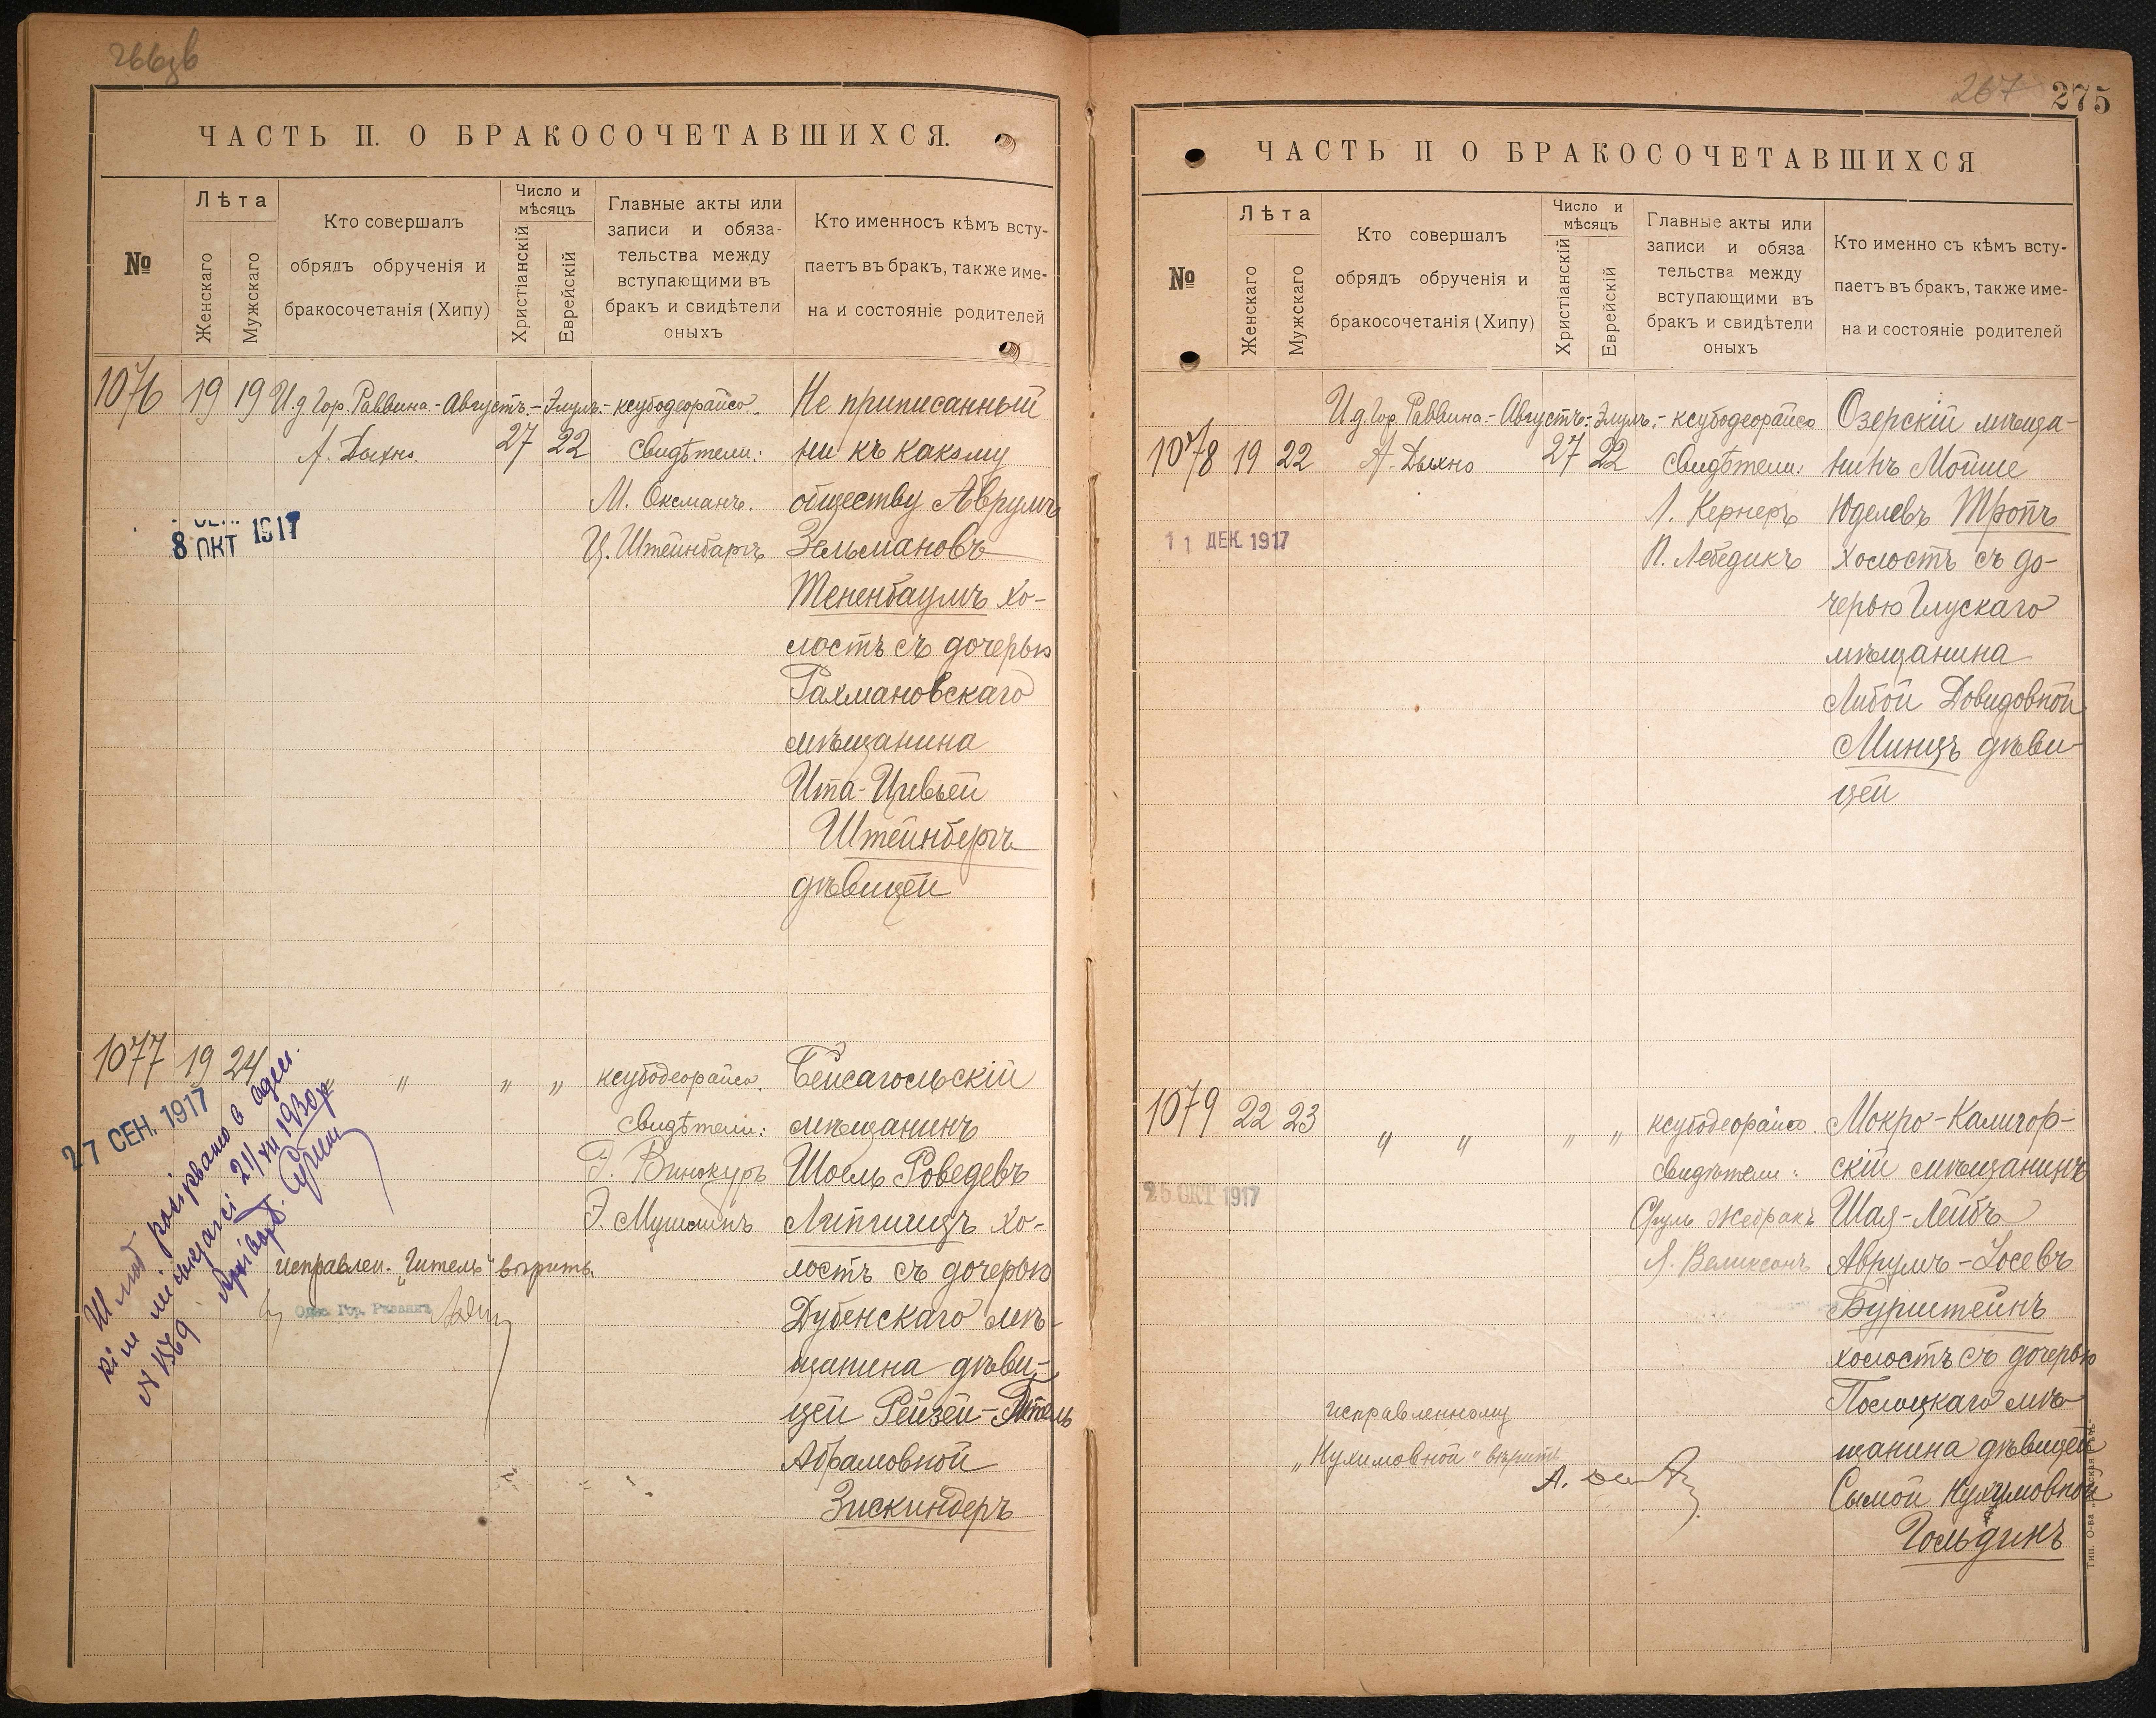 275
267
ЧАСТЬ II. О БРАКОСОЧЕТАВШИХСЯ.
№
Лѣта
Женскаго
Мужскаго
Кто совершалъ
обрядъ обрученія и
бракосочетанія (Хипу)
Число и
мѣсяцъ
Христіанскій
Еврейскій
Главные акты или
записи и обяза-
тельства между
вступающими въ
бракъ и свидѣтели
оныхъ
Кто именносъ кѣмъ всту-
паетъ въ бракъ, также име-
на и состояніе родителей
1076
19
19
И.д Гор. Раввина.-
А. Дыхно.
Августъ.-
27
Элулъ.-
22
ксубодеорайсо.
Свидѣтели:
М. Оксманъ.
Ц. Штейнбаргъ
Не приписанный
ни къ какому
обществу Аврумъ
Зельмановъ
Тененбаумъ хо-
лостъ съ дочерью
Рахмановскаго
мѣщанина
Ита-Цивьей
Штейнбергъ
дѣвицей
8 ОКТ 1917
1077
19
24
" " "
ксубодеорайсо.
Свидѣтели:
Э. Винокуръ
Э. Мушлинъ
Бейсагольскій
мѣщанинъ
Шоель
Липшицъ хо-
лостъ съ дочерью
Дубенскаго мѣ-
щанина дѣви-
цей Рейзей-Гитель
Абрамовной
Зискиндеръ
27 СЕН. 1917
исправлен. "Гитель" вѣрить.
Одес. Гор. Раввинъ
N 1369
ЧАСТЬ II О БРАКОСОЧЕТАВШИХСЯ
№
Лѣта
Женскаго
Мужскаго
Кто совершалъ
обрядъ обрученія и
бракосочетанія (Хипу)
Число и
мѣсяцъ
Христіанскій
Еврейскій
Главные акты или
записи и обяза
тельства между
вступающими въ
бракъ и свидѣтели
оныхъ
Кто именно съ кѣмъ всту-
паетъ въ бракъ, также име-
на и состояніе родителей
1078
19
22
И.д Гор. Раввина.-
А. Дыхно
Августъ.-
27
Элулъ.-
22
ксубодеорайсо
Свидѣтели:
Л. Кернеръ
П. Лебедикъ
Озерскій мѣща-
нинъ Мойше
Юделевъ Тропъ
холостъ съ до-
черью Глускаго
мѣщанина
Либой Довидовной
Минцъ дѣви-
цей
11 ДЕК. 1917
1079
22
23
" " " "
ксубодеорайсо.
свидѣтели:
Сруль Жебракъ
Я. Великсонъ
Мокро-Калигор-
скій мѣщанинъ
Шая-Лейбъ
Аврумъ-Іосевъ
Бурштейнъ
холостъ съ дочерью
Полоцкаго мѣ-
щанина дѣвицей
Сымой Нухимовной
Гольдинъ
25 ОКТ 1917
исправленному
"Нухимовной" вѣрить